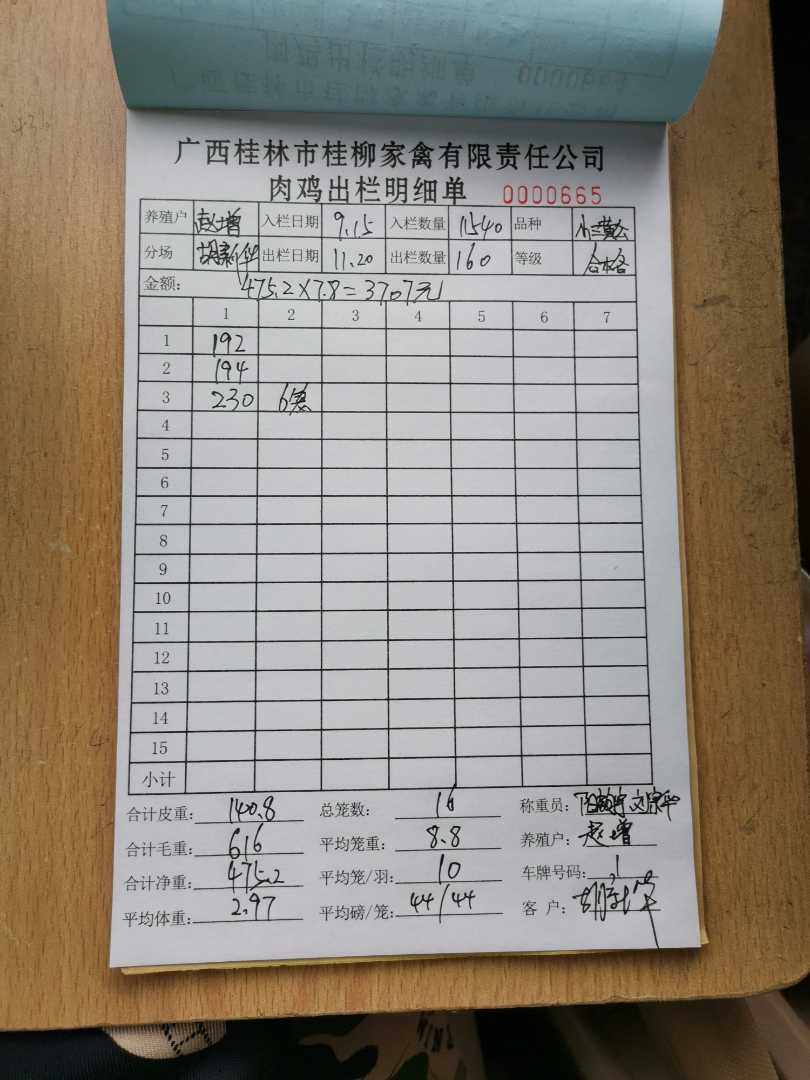 广西桂林市桂柳家禽有限责任公司
肉鸡出栏明细单 0000665
养殖户 赵增 入栏日期 9.15 入栏数量 11540 品种 小三黄公
分场 胡新华 出栏日期 11.20 出栏数量 160 等级 合格
金额: 475.2×7.8=3707元
1 2 3 4 5 6 7
1 192
2 194
3 230 6笼
4
5
6
7
8
9
10
11
12
13
14
15
小计
合计皮重: 140.8 总笼数: 16 称重员:
合计毛重: 616 平均笼重: 8.8 养殖户: 赵增
合计净重: 475.2 平均笼/羽: 10 车牌号码: 1
平均体重: 2.97 平均磅/笼: 44/44 客户: 胡新华